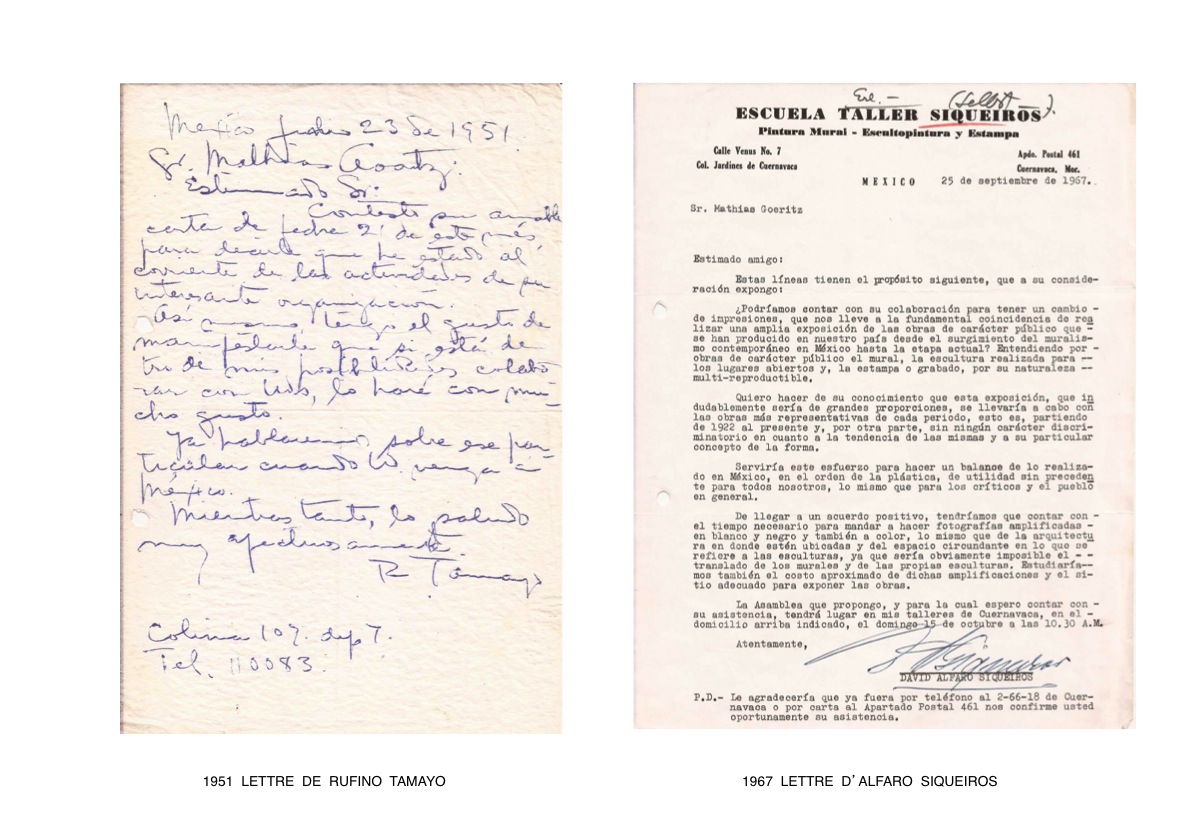 Mexico 23 de 1951.
Sr. Mathias
Estimado Sr:
Contesto su amable
carta de fecha 21 de este més,
para decirle que he estado al
corriente de las actividades de su
interesante organización.
Asi mismo, tengo el gusto de
manifestarle que si está de
tro de mis posibilidades colabo
rar con Uds, lo haré con mu
cho gusto.
Ya hablaremos sobre ese par
ticular cuando Ud. venga a
México.
Mientras tanto, lo saludo
muy afectuosamente.
R Tamayo
Colima 107. dep 7.
Tel. 110083.
1951 LETTRE DE RUFINO TAMAYO
Ere.- (Selbst).
ESCUELA TALLER SIQUEIROS
Pintura Mural - Escultopintura y Estampa
Calle Venus No. 7
Col. Jardines de Cuernavaca
Apdo. Postal 461
Cuernavaca, Mor.
MEXICO 25 de septiembre de 1967.
Sr. Mathias Goeritz
Estimado amigo:
Estas líneas tienen el propósito siguiente, que a su conside-
ración expongo:
¿Podríamos contar con su colaboración para tener un cambio -
de impresiones, que nos lleve a la fundamental coincidencia de rea
lizar una amplia exposición de las obras de carácter público que -
se han producido en nuestro país desde el surgimiento del muralis-
mo contemporáneo en México hasta la etapa actual? Entendiendo por -
obras de carácter público el mural, la escultura realizada para --
los lugares abiertos y, la estampa o grabado, por su naturaleza --
multi-reproductible.
Quiero hacer de su conocimiento que esta exposición, que in
dudablemente sería de grandes proporciones, se llevaría a cabo con
las obras más representativas de cada periodo, esto es, partiendo
de 1922 al presente y, por otra parte, sin ningún carácter discri-
minatorio en cuanto a la tendencia de las mismas y a su particular
concepto de la forma.
Serviría este esfuerzo para hacer un balance de lo realiza-
do en México, en el orden de la plástica, de utilidad sin preceden
te para todos nosotros, lo mismo que para los críticos y el pueblo
en general.
De llegar a un acuerdo positivo, tendríamos que contar con -
el tiempo necesario para mandar a hacer fotografías amplificadas -
en blanco y negro y también a color, lo mismo que de la arquitectu
ra en donde estén ubicadas y del espacio circundante en lo que se
refiere a las esculturas, ya que sería obviamente imposible el - -
translado de los murales y de las propias esculturas. Estudiaría--
mos también el costo aproximado de dichas amplificaciones y el si-
tio adecuado para exponer las obras.
La Asamblea que propongo, y para la cual espero contar con -
su asistencia, tendrá lugar en mis talleres de Cuernavaca, en el -
domicilio arriba indicado, el domingo 15 de octubre a las 10.30 A.M.
Atentamente,
DAVID ALFARO SIQUEIROS
P.D.- Le agradecería que ya fuera por teléfono al 2-66-18 de Cuer-
navaca o por carta al Apartado Postal 461 nos confirme usted
oportunamente su asistencia.
1967 LETTRE D'ALFARO SIQUEIROS